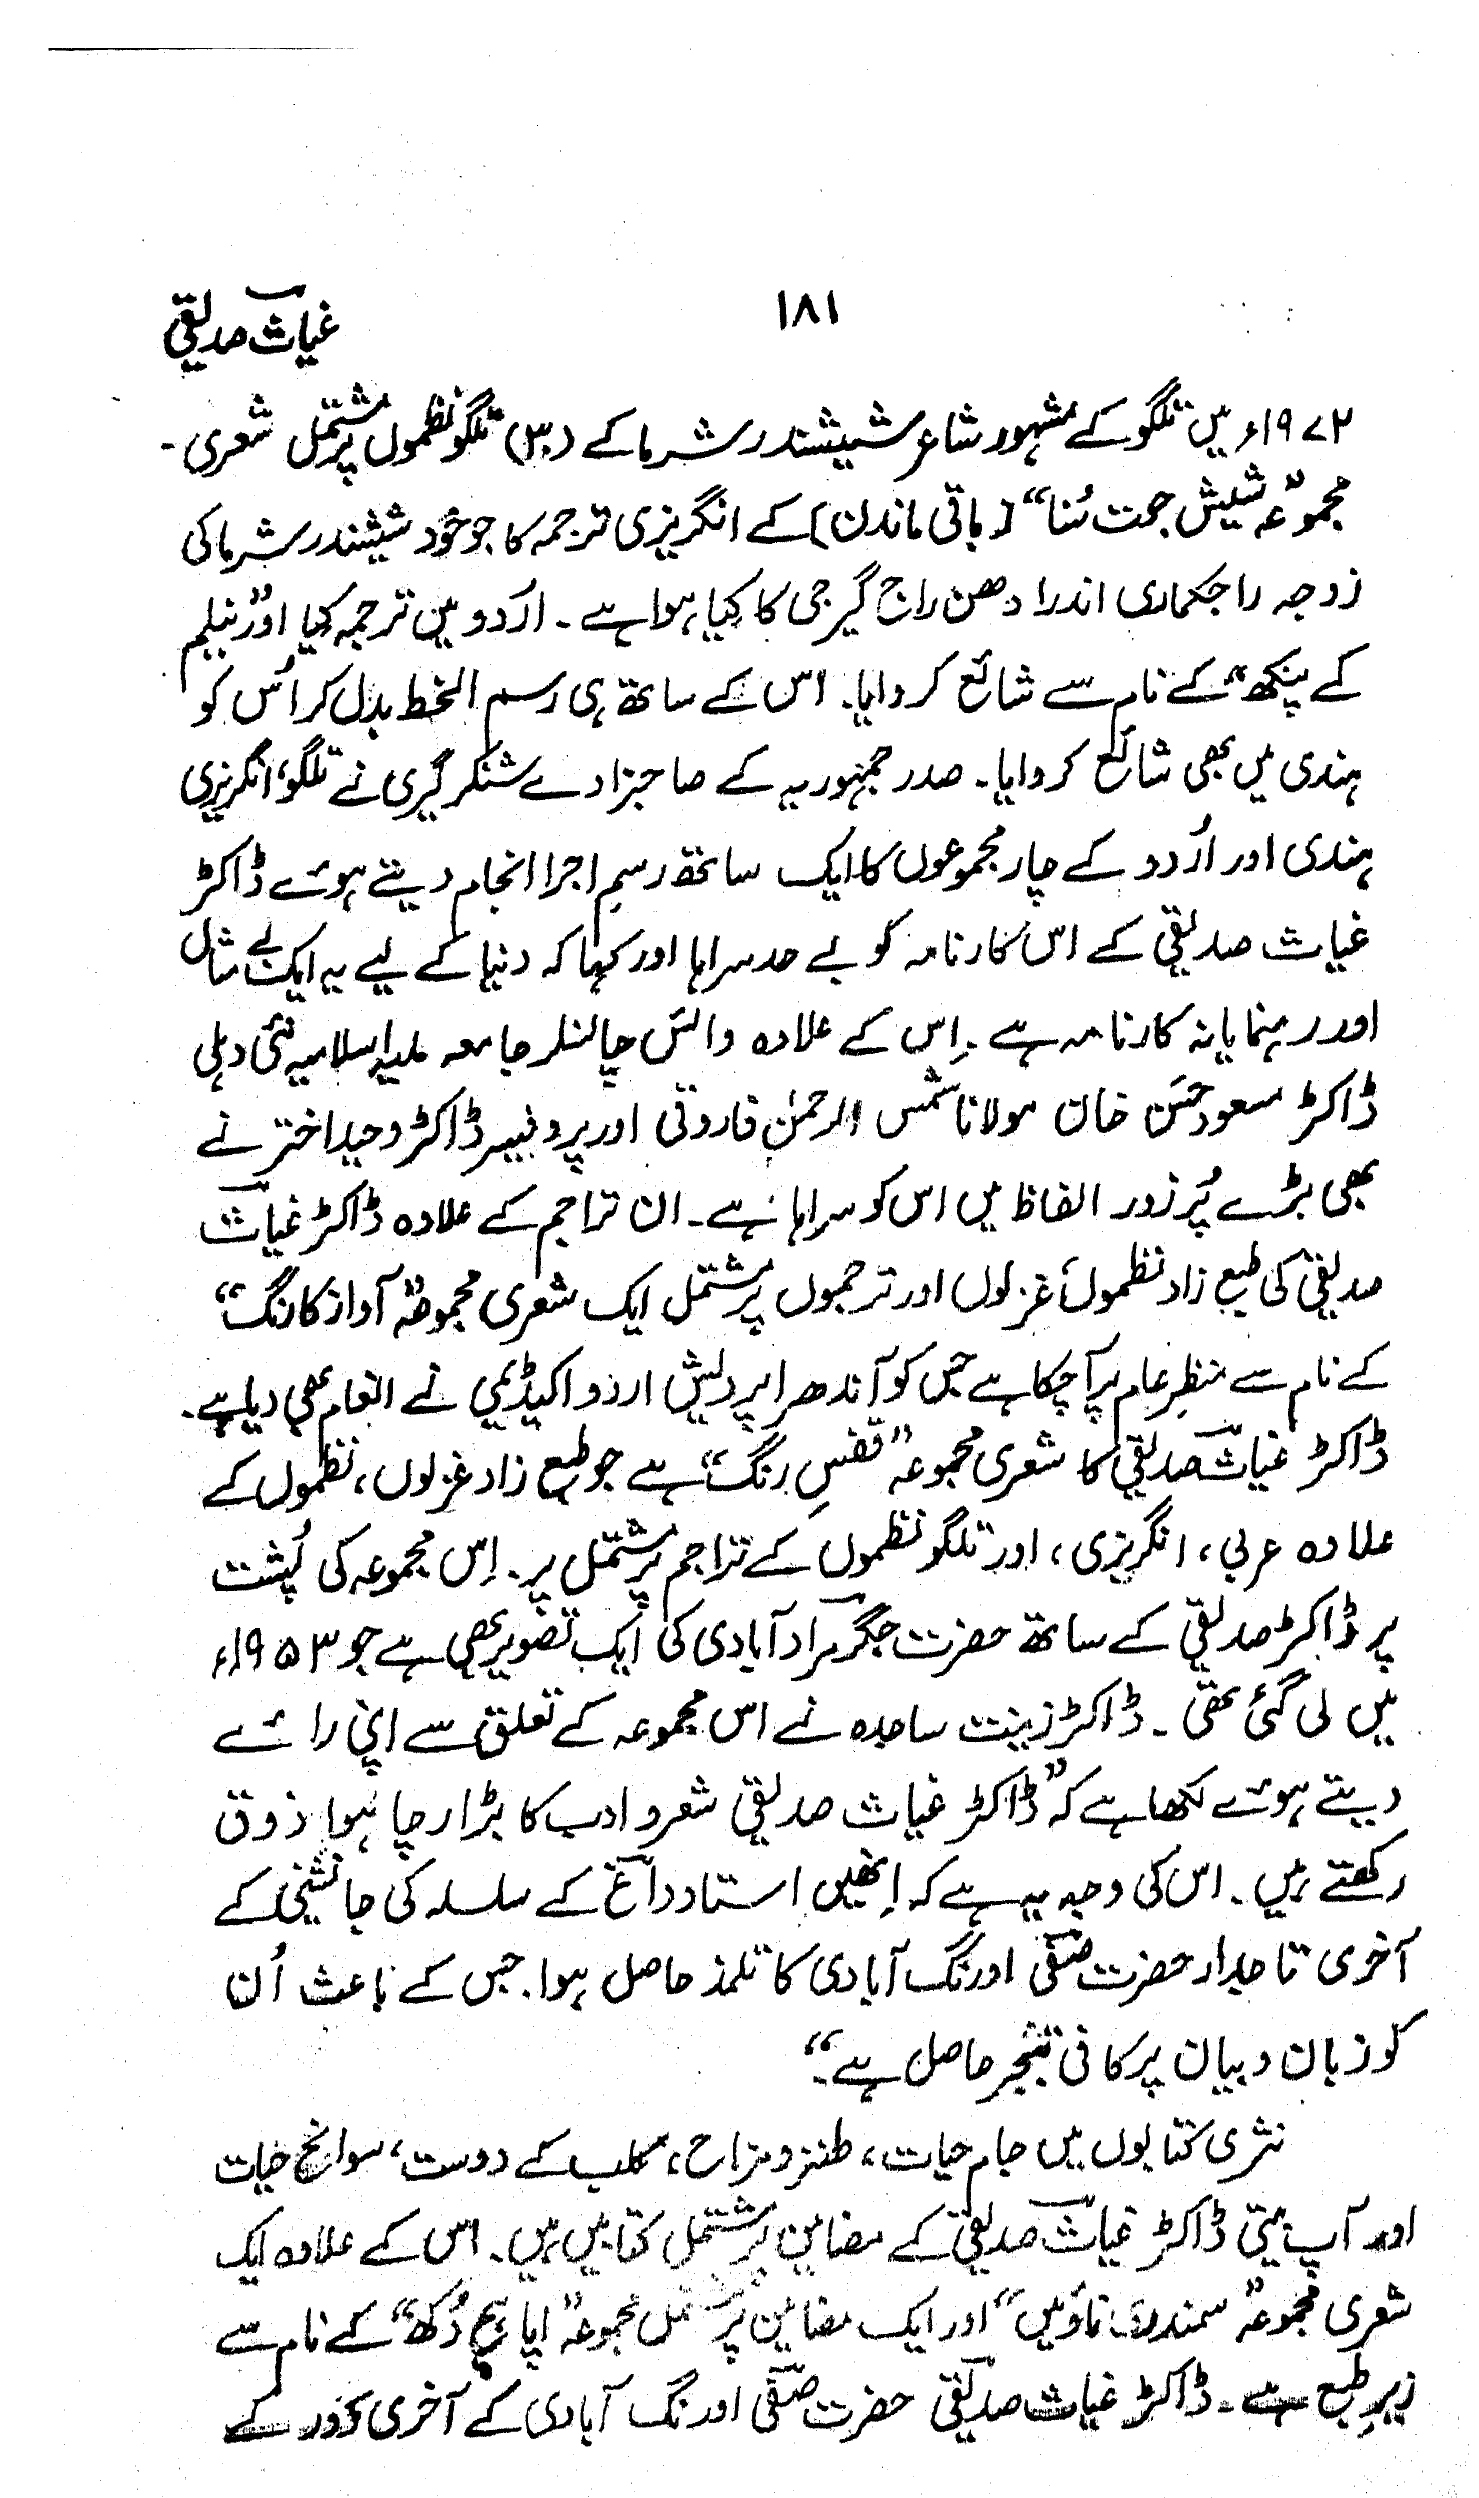 ۱۸۱
غیاثؔ صدیقی
۱۹۷۲ء میں تلگو کے مشہور شاعر شیشندر شرما کے (۳۰) تلگو نظموں پر مشتمل شعری -
مجموعہ ”شیش جیوت سُنا“ [باقی ماندن] کے انگریزی ترجمہ کا جو خود شیشندر شرما کی
زوجہ راجکماری اندرا دھن راج گیر جی کا کیا ہوا ہے ۔ اردو میں ترجمہ کیا اور ”نیلم
کے پنکھ“ کے نام سے شائع کروایا۔ اس کے ساتھ ہی رسم الخط بدل کر اُس کو
ہندی میں بھی شائع کروایا۔ صدر جمہوریہ کے صاحبزادے شنکر گیری نے تلگو، انگریزی
ہندی اور اُردو کے چار مجموعوں کا ایک ساتھ رسمِ اجرا انجام دیتے ہوئے ڈاکٹر
غیاث صدیقی کے اس کارنامہ کو بے حد سراہا اور کہا کہ دنیا کے لیے یہ ایک بے مثال
اور رہنمایانہ کارنامہ ہے۔ اِس کے علاوہ وائس چانسلر جامعہ ملیہ اسلامیہ نئی دہلی
ڈاکٹر مسعود حسن خان مولانا شمس الرحمٰن فاروقی اور پروفیسر ڈاکٹر وحید اختر نے
بھی بڑے پُر زور الفاظ میں اس کو سراہا ہے۔ ان تراجم کے علاوہ ڈاکٹر غیاثؔ
صدیقی کی طبع زاد نظموں، غزلوں اور ترجموں پر مشتمل ایک شعری مجموعہ ”آواز کا رنگ“
کے نام سے منظرِ عام پر آ چکا ہے جس کو آندھرا پردیش اردو اکیڈیمی نے انعام بھی دیا ہے۔
ڈاکٹر غیاثؔ صدیقی کا شعری مجموعہ ”قفسِ رنگ“ ہے جو طبع زاد غزلوں، نظموں کے
علاوہ عربی، انگریزی، اور تلگو نظموں کے تراجم پر مشتمل پر۔ اِس مجموعہ کی پُشت
پر ڈاکٹر صدیقی کے ساتھ حضرت جگرؔ مراد آبادی کی ایک تصویر بھی ہے جو ۱۹۵۳ء
میں لی گئی تھی ۔ ڈاکٹر زینت ساجدہ نے اس مجموعہ کے تعلق سے اپنی رائے
دیتے ہوئے لکھا ہے کہ ”ڈاکٹر غیاث صدیقی شعر و ادب کا بڑا رچا ہوا ذوق
رکھتے ہیں۔ اس کی وجہ یہ ہے کہ اِنھیں استاد داغؔ کے سلسلہ کی جانشینی کے
آخری تاجدار حضرت صفیؔ اورنگ آبادی کا تلمذ حاصل ہوا۔ جس کے باعث اُن
کو زبان و بیان پر کافی تبحّر حاصل ہے“
نثری کتابوں میں جام حیات، طنز و مزاح، کلب کے دوست، سوانح حیات
اور آپ بیتی ڈاکٹر غیاثؔ صدیقی کے مضامین پر مشتمل کتابیں ہیں۔ اس کے علاوہ ایک
شعری مجموعہ ”سمندر، ناؤیں“ اور ایک مضامین پر مشتمل مجموعہ ”اپاہج دُکھ“ کے نام سے
زیرِ طبع ہے۔ ڈاکٹر غیاث صدیقی حضرت صفیؔ اورنگ آبادی کے آخری دَور کے